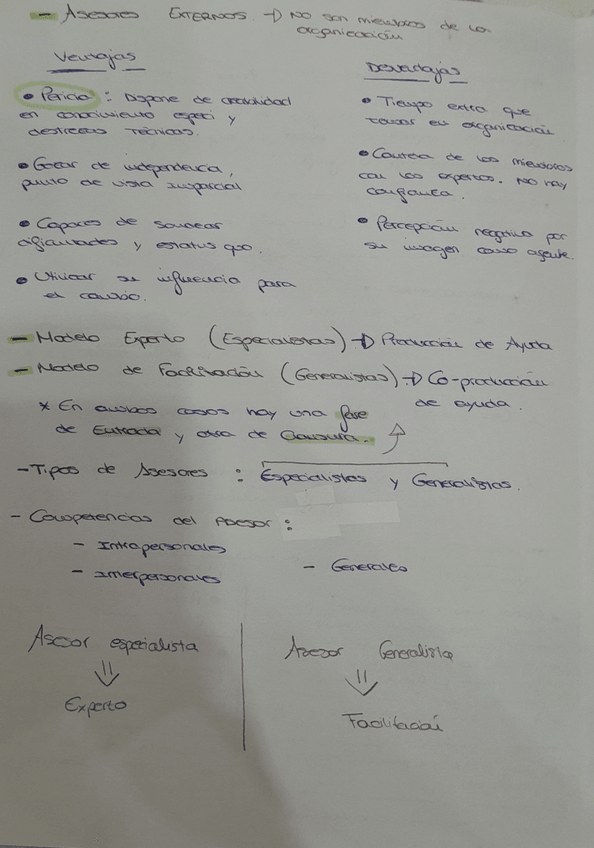 - Asesores EXTERNOS → NO son miembros de la
organización
Ventajas
• Pericia: Dispone de credibilidad
en conocimiento especi y
destrezas técnicas.
• Gozar de independencia,
punto de vista imparcial
• Capaces de sondear
dificultades y estatus quo.
• Utilizar su influencia para
el cambio.
Desventajas
• Tiempo extra que
tomar en organización
• Cautela de los miembros
con los expertos. NO hay
confianza.
• Percepción negativa por
su imagen como agente
- Modelo Experto (Especialistas) → Producción de Ayuda
- Modelo de Facilitación (Generalistas) → Co-producción
de ayuda.
* En ambos casos hay una fase
de Entrada y otra de Clausura.
- Tipos de Asesores : Especialistas y Generalistas.
- Competencias del Asesor :
- Intrapersonales
- Interpersonales
- Generales
Asesor especialista
⇓
Experto
Asesor Generalista
⇓